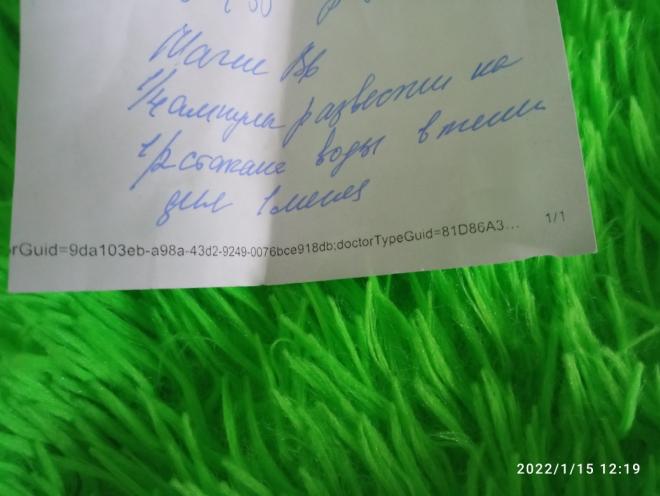 Магне В6
1/4 ампулы развести на
1/2 стакане воды в течении
дня 1 месяц
orGuid=9da103eb-a98a-43d2-9249-0076bce918db;doctorTypeGuid=81D86A3...
1/1
2022/1/15 12:19